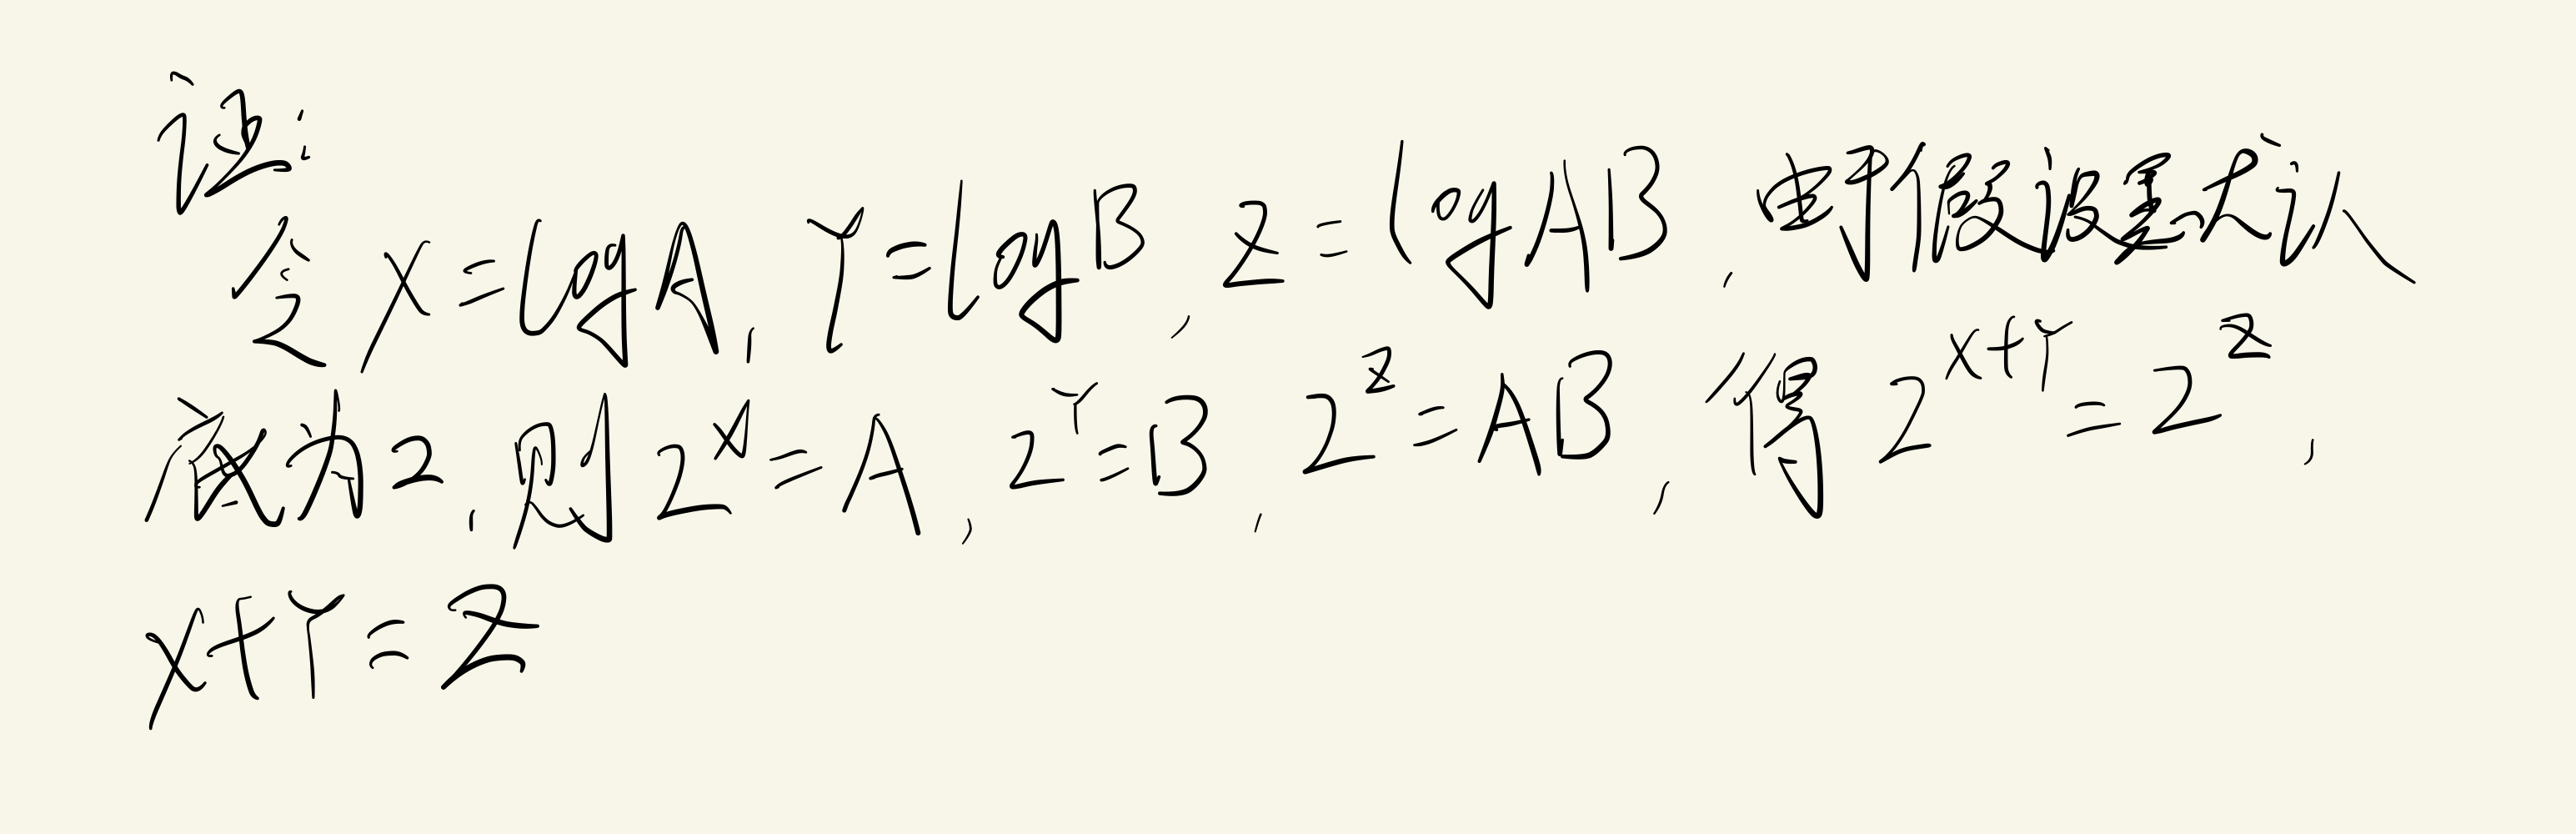 证:
令 X=logA, Y=logB, Z=logAB, 由于假设默认
底为2, 则 2^X=A, 2^Y=B, 2^Z=AB, 得 2^{X+Y}=2^Z,
X+Y=Z